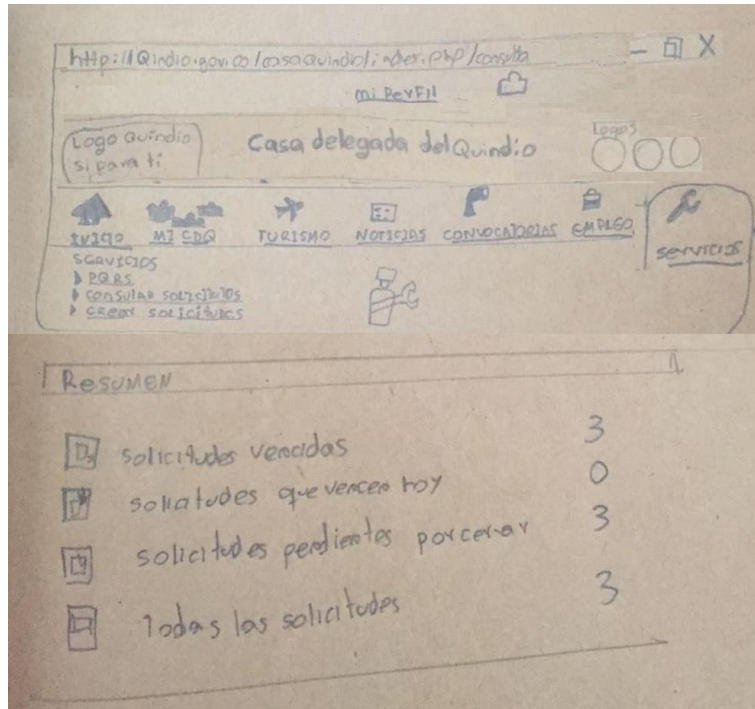 http://Qindio.gov.co/casaquindio/index.php/consulta
mi PerFil
Logo Quindio
si para ti
Casa delegada del Quindio
Logos
INICIO MI CDQ TURISMO NOTICIAS CONVOCATORIAS EMPLEO SERVICIOS
SERVICIOS
PQRS
CONSULAR SOLICITUDES
CREAR SOLICITUDES
RESUMEN
solicitudes vencidas 3
solicitudes que vencen hoy 0
solicitudes pendientes por cerrar 3
Todas las solicitudes 3